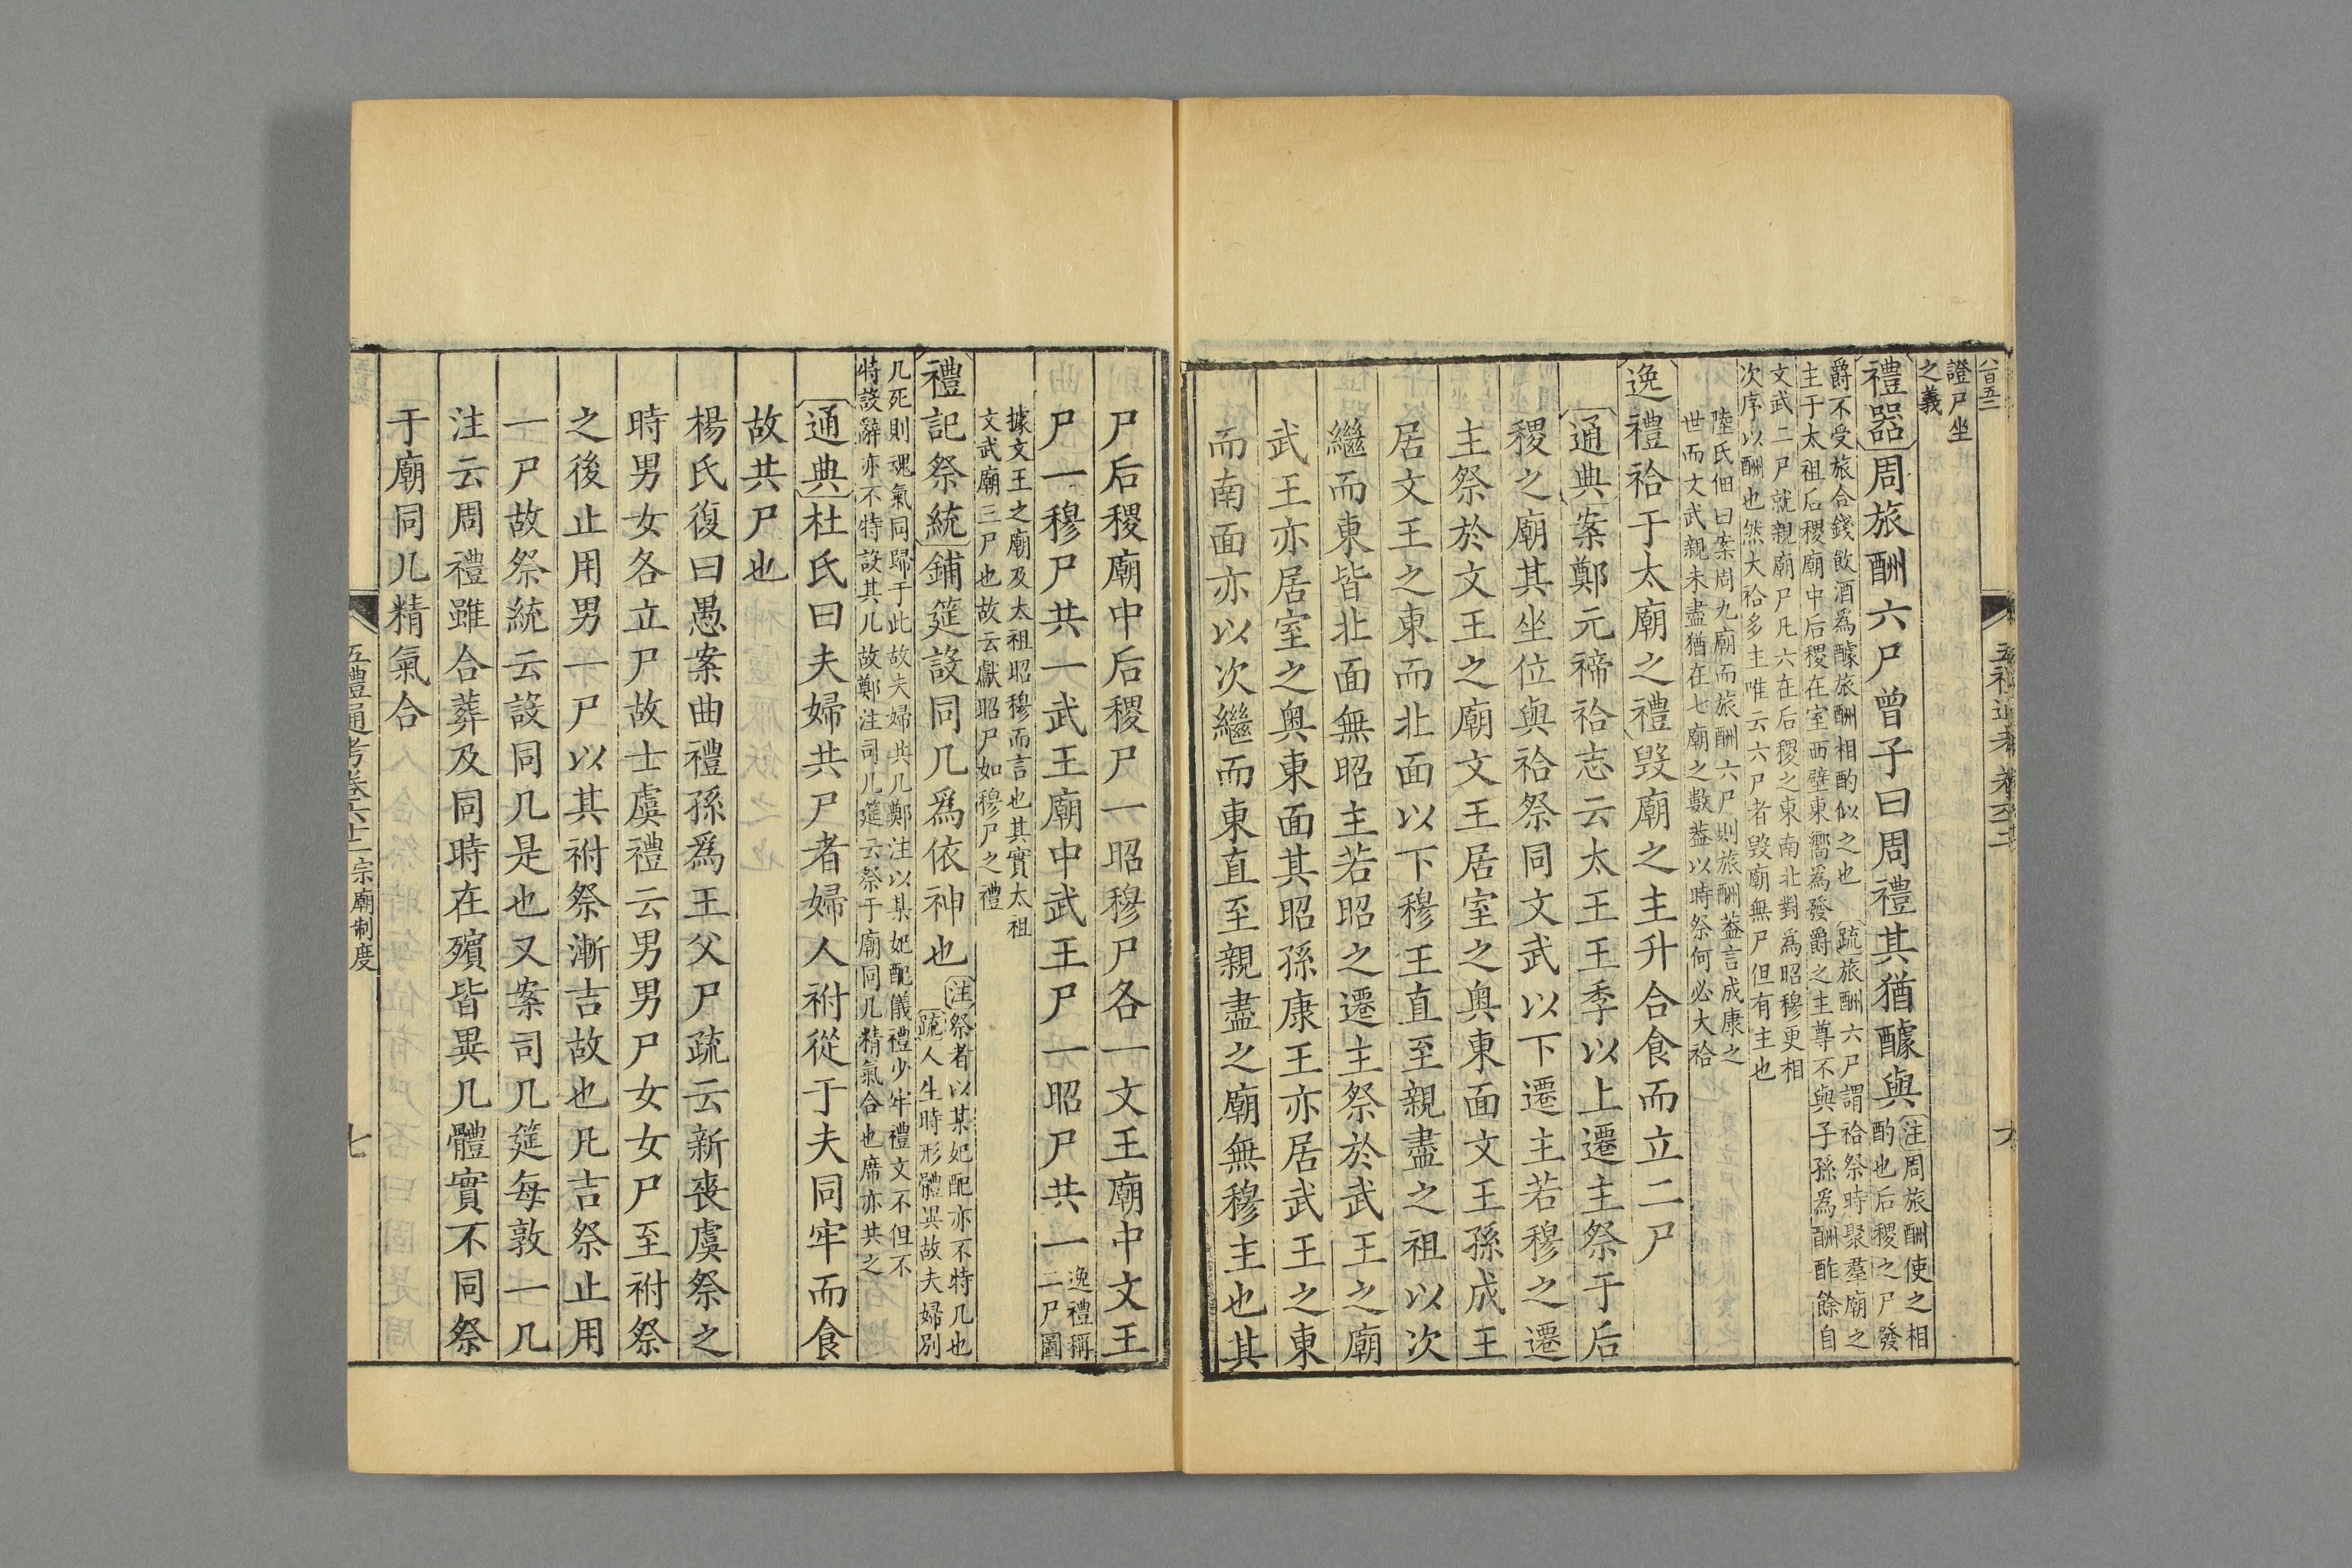 證尸坐
之義
禮器周旅酬六尸曾子曰周禮其猶醵與
注周旅酬使之相
酌也后稷之尸發
爵不受旅合錢飲酒爲醵旅酬相酌似之也疏旅酬六尸謂祫祭時聚羣廟之
主于太祖后稷廟中后稷在室西壁東嚮爲發爵之主尊不與子孫爲酬酢餘自
文武二尸就親廟尸凡六在后稷之東南北對爲昭穆更相
次序以酬也然大祫多主唯云六尸者毀廟無尸但有主也
陸氏佃曰案周九廟而旅酬六尸則旅酬蓋言成康之
世而文武親未盡猶在七廟之數蓋以時祭何必大祫
逸禮祫于太廟之禮毀廟之主升合食而立二尸
通典案鄭元禘祫志云太王王季以上遷主祭于后
稷之廟其坐位與祫祭同文武以下遷主若穆之遷
主祭於文王之廟文王居室之奧東面文王孫成王
居文王之東而北面以下穆王直至親盡之祖以次
繼而東皆北面無昭主若昭之遷主祭於武王之廟
武王亦居室之奧東面其昭孫康王亦居武王之東
而南面亦以次繼而東直至親盡之廟無穆主也其
尸后稷廟中后稷尸一昭穆尸各一文王廟中文王
尸一穆尸共一武王廟中武王尸一昭尸共一
逸禮稱
二尸圖
據文王之廟及太祖昭穆而言也其實太祖
文武廟三尸也故云獻昭尸如穆尸之禮
禮記祭統鋪筵設同几爲依神也
注祭者以某妃配亦不特几也
疏人生時形體異故夫婦別
几死則魂氣同歸于此故夫婦共几鄭注以某妃配儀禮少牢禮文不但不
特設辭亦不特設其几故鄭注司几筵云祭于廟同几精氣合也席亦共之
通典杜氏曰夫婦共尸者婦人祔從于夫同牢而食
故共尸也
楊氏復曰愚案曲禮孫爲王父尸疏云新喪虞祭之
時男女各立尸故士虞禮云男男尸女女尸至祔祭
之後止用男一尸以其祔祭漸吉故也凡吉祭止用
一尸故祭統云設同几是也又案司几筵每敦一几
注云周禮雖合葬及同時在殯皆異几體實不同祭
于廟同几精氣合
五禮通考卷六十二 宗廟制度
七